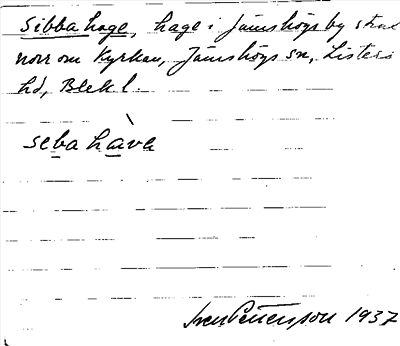 Sibbahage, hage i Jämshögs by strax
norr om Kyrkan, Jämshögs sn, Listers
hd, Blek l.
seba hàva
Sven Pettersson 1937